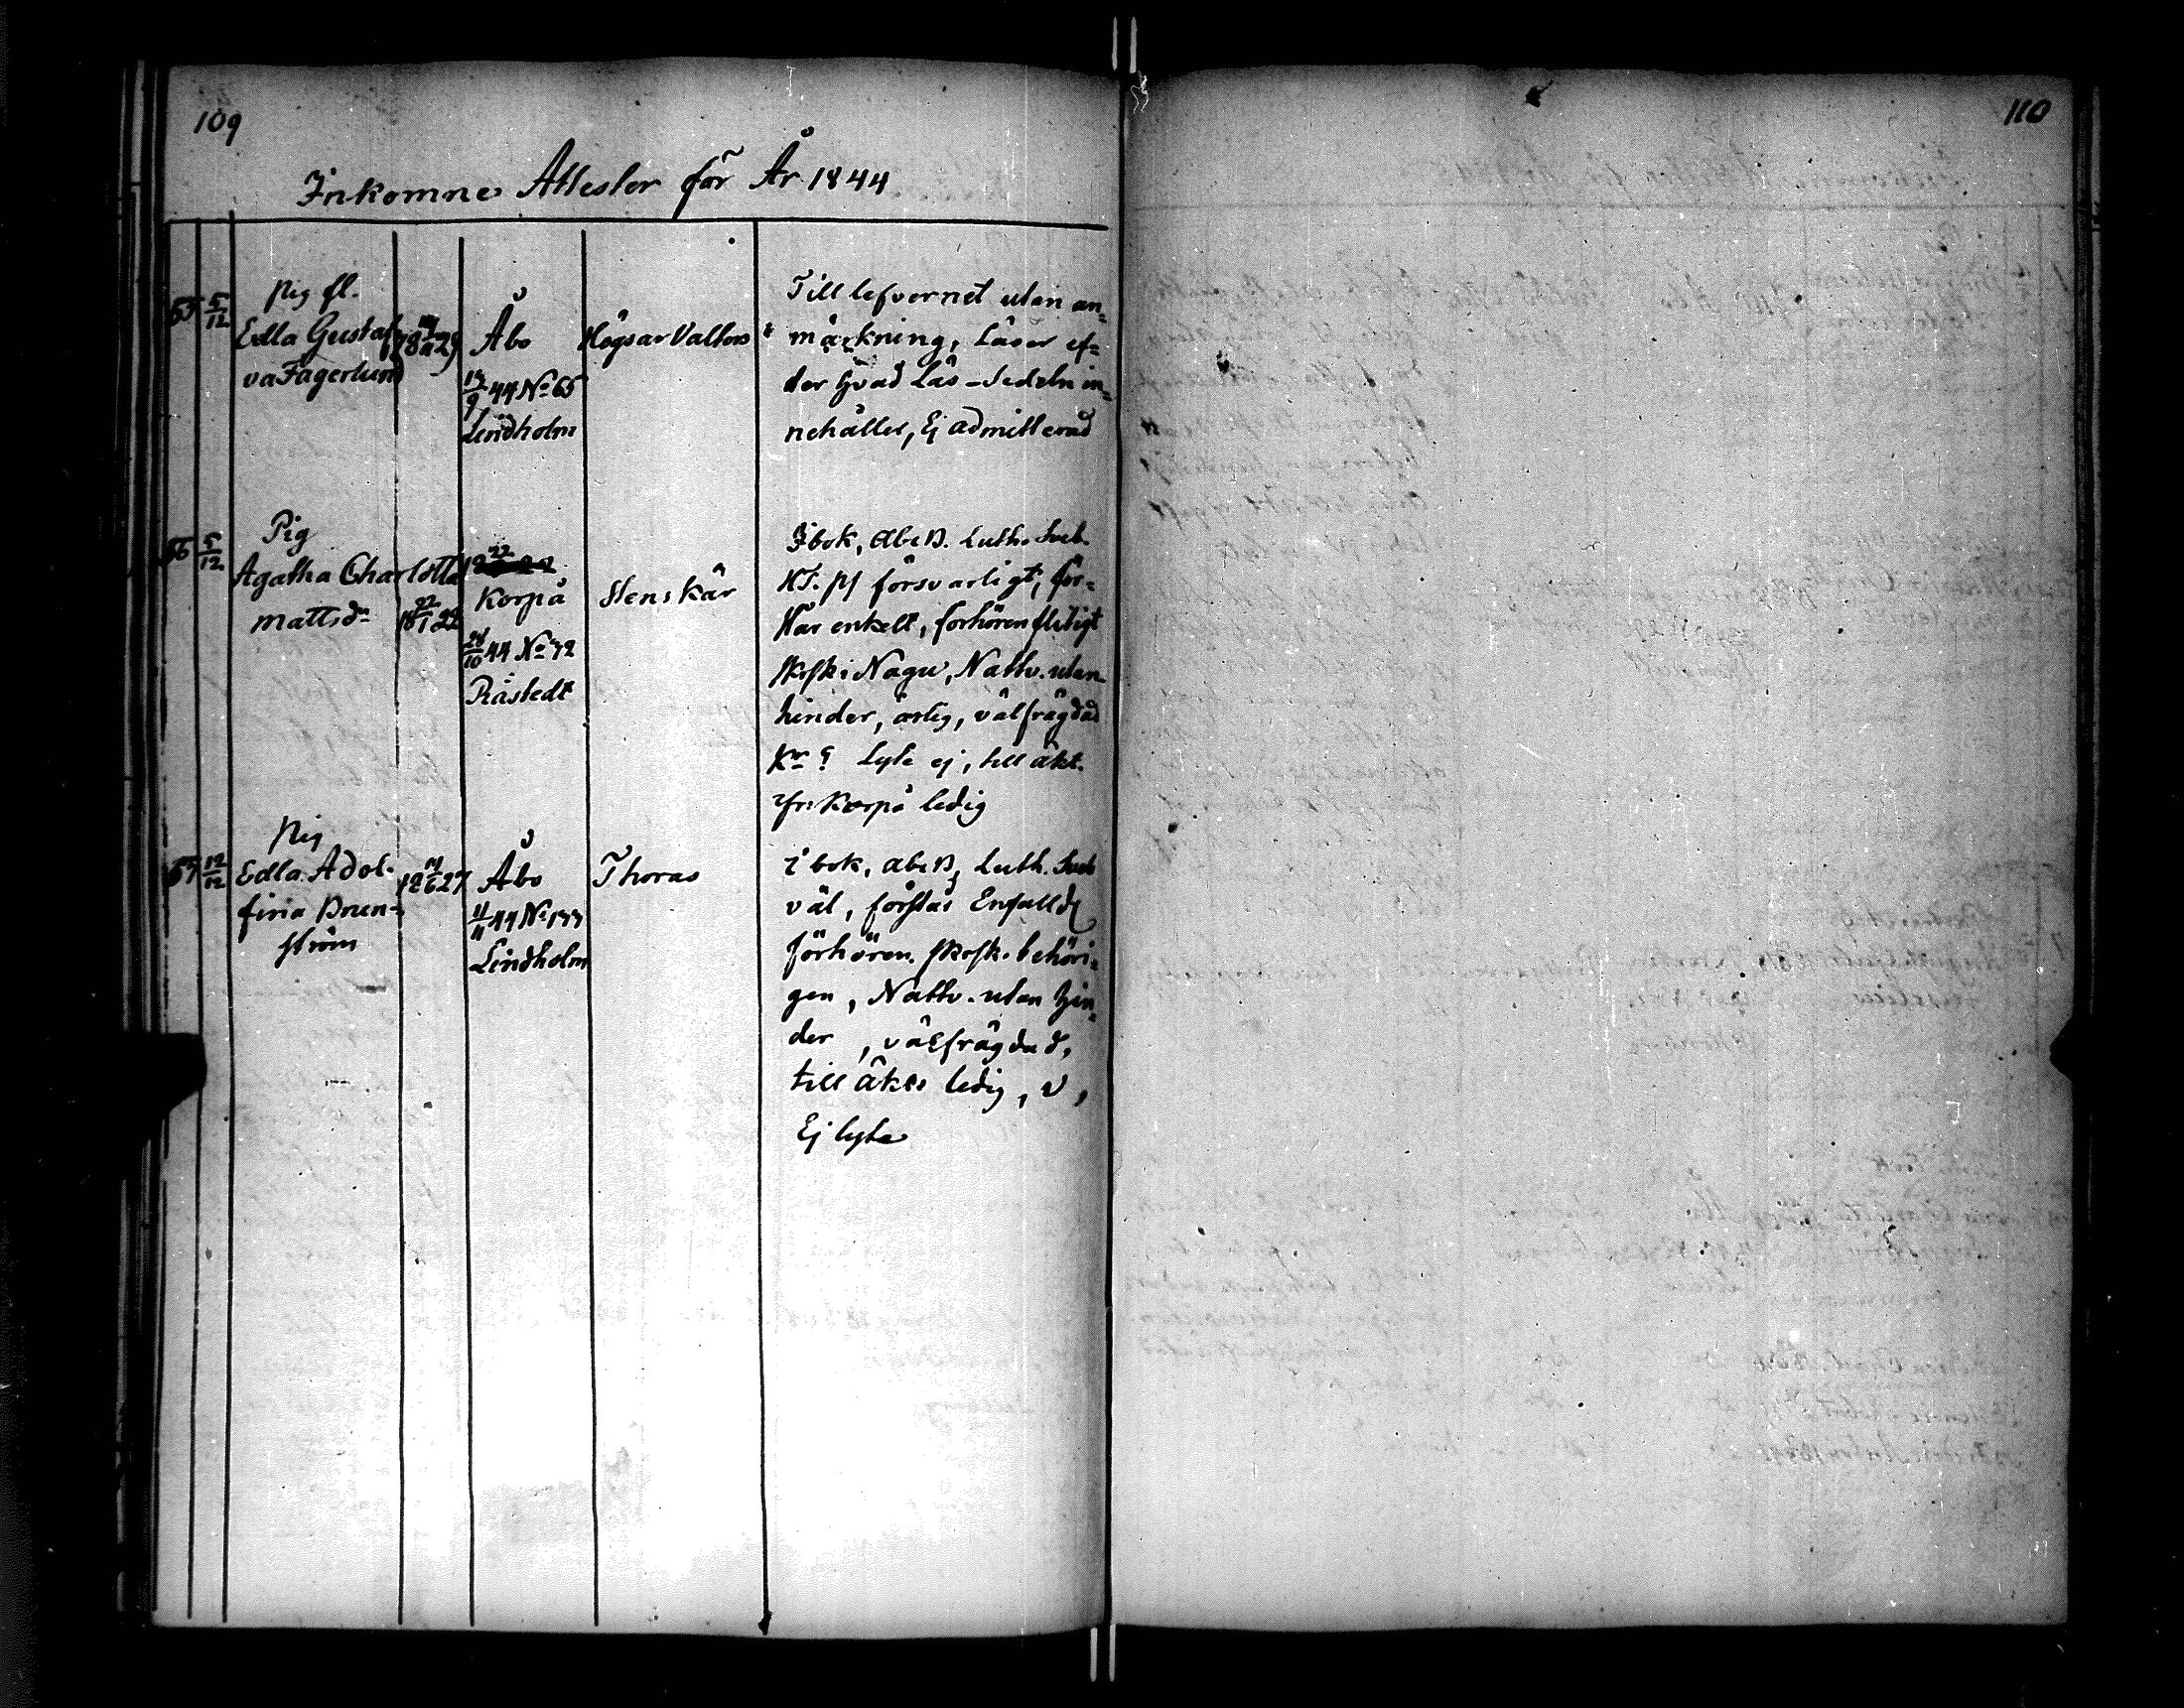 109
110
Inkomne Attester för År 1844
55 5/12
Pig fl.
Edla Gustaf
va Fagerlund
Åbo
44 No 65
Lindholm
Högsar Valtors
Till lefvernet utan an=
märkning, Läser ef=
der hvad Läs-Sedeln in=
nehåller, Ej admitterad
56 5/12
Pig
Agatha Charlotta
Mattsdr
18 22/1 22
Korpå
44 No 72
Råstedt
Stenskär
I bok, Abc B. Luth. Sveb.
försvarligt, för-
står enkelt, förhören flitigt
i Nagu, Nattv. utan
hinder, ärlig, välfrägdad
Lyte ej, till äkt.
ifr. Korpå ledig
57 12/12
Pig
Edla Adol-
fina Brun-
ström
Åbo
11/11 44 No 133
Lindholm
Thoras
i bok, Abc B, Luth. Sveb
väl, förstås Enfalld
förhören. behöri-
gen, Nattv. utan hin=
der, välfrägdad,
till äkts ledig, v,
Ej lyte